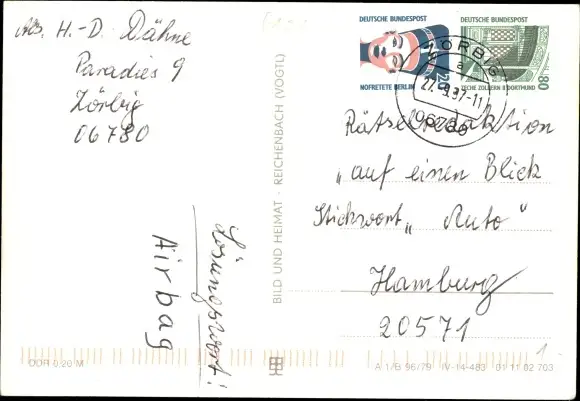 Abs. H.-D. Dähne
Paradies 9
Zörbig
06780
DEUTSCHE BUNDESPOST
NOFRETETE BERLIN
DEUTSCHE BUNDESPOST
80
ZECHE ZOLLERN II DORTMUND
ZÖRBIG
a
27.-9.97-11
06780
Rätselredaktion
„auf einen Blick
Stichwort „Auto“
Hamburg
20571
Lösungswort!
Airbag
BILD UND HEIMAT · REICHENBACH (VOGTL)
DDR 0,20 M
A 1/B 96/79 IV-14-483 01 11 02 703
1